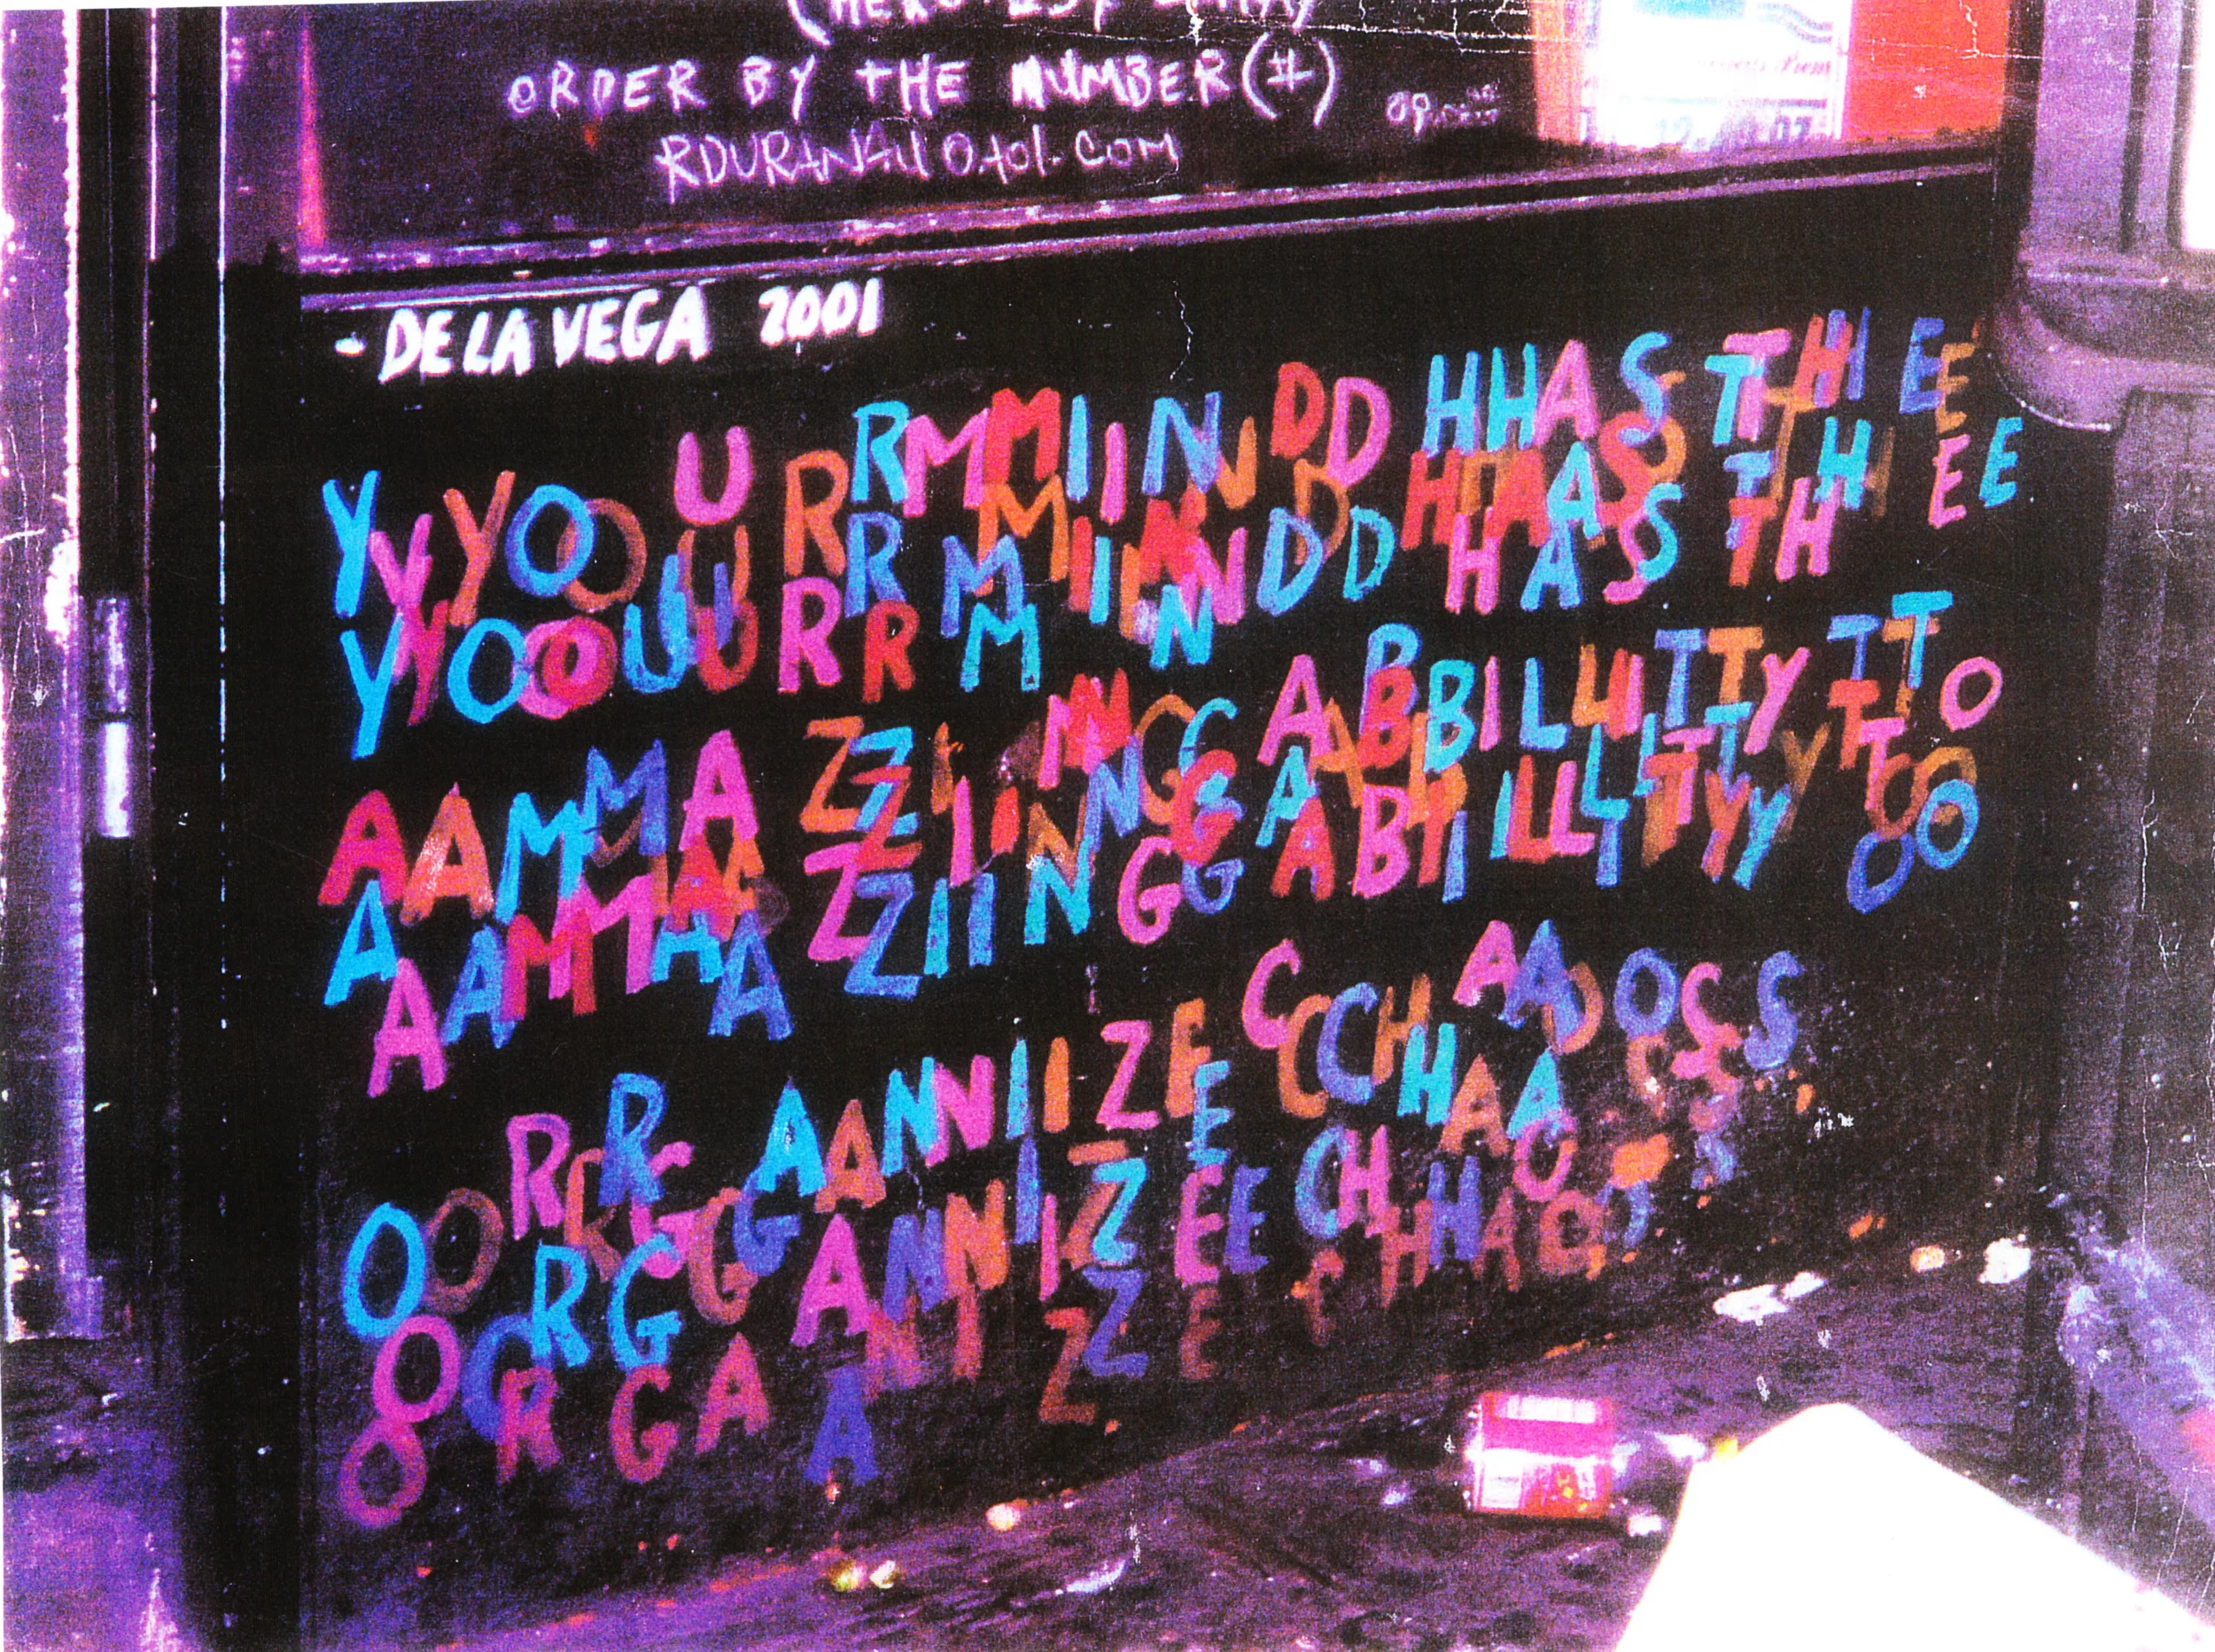 ORDER BY THE NUMBER (#)
- DE LA VEGA 2001
YOUR MIND HAS THE
AMAZING ABILITY TO
ORGANIZE CHAOS